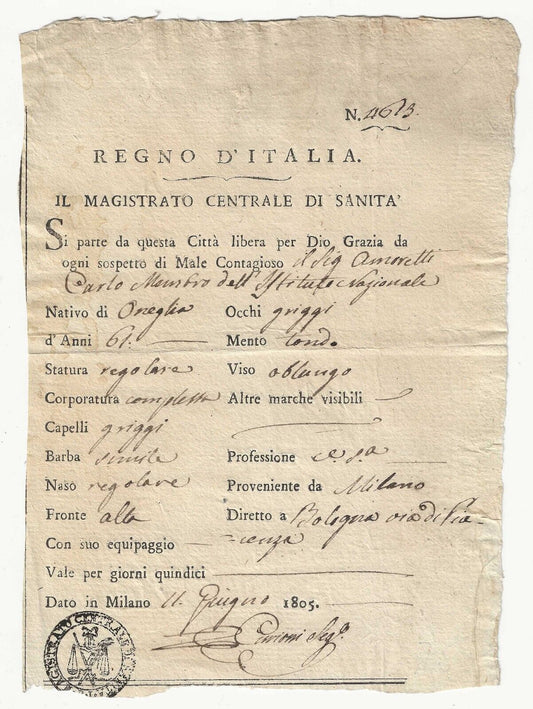 N. 4613.
REGNO D'ITALIA.
IL MAGISTRATO CENTRALE DI SANITA'
Si parte da questa Città libera per Dio Grazia da
ogni sospetto di Male Contagioso il Sig Amoretti
Carlo Membro dell'Istituto Nazionale
Nativo di Oneglia Occhi griggi
d'Anni 61. Mento tondo
Statura regolare Viso oblungo
Corporatura complessa Altre marche visibili
Capelli griggi
Barba simile Professione
Naso regolare Proveniente da Milano
Fronte alta Diretto a Bologna via di Pia-
Con suo equipaggio =cenza
Vale per giorni quindici
Dato in Milano 11. Giugno 1805.
Segº.
MAGISTRATO CENTRALE DI